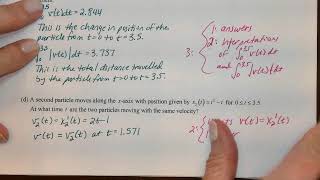 ∫₀^3.5 v(t)dt = 2.844
This is the change in position of the
particle from t=0 to t=3.5.
∫₀^3.5 |v(t)|dt = 3.737
This is the total distance travelled
by the particle from t=0 to t=3.5.
3: { 1: answers
2: interpretations
of ∫₀^3.5 v(t)dt
and ∫₀^3.5 |v(t)|dt
(d) A second particle moves along the x-axis with position given by x₂(t) = t² − t for 0 ≤ t ≤ 3.5.
At what time t are the two particles moving with the same velocity?
v₂(t) = x₂'(t) = 2t−1
v(t) = v₂(t) at t = 1.571
2: { v(t) = x₂'(t)